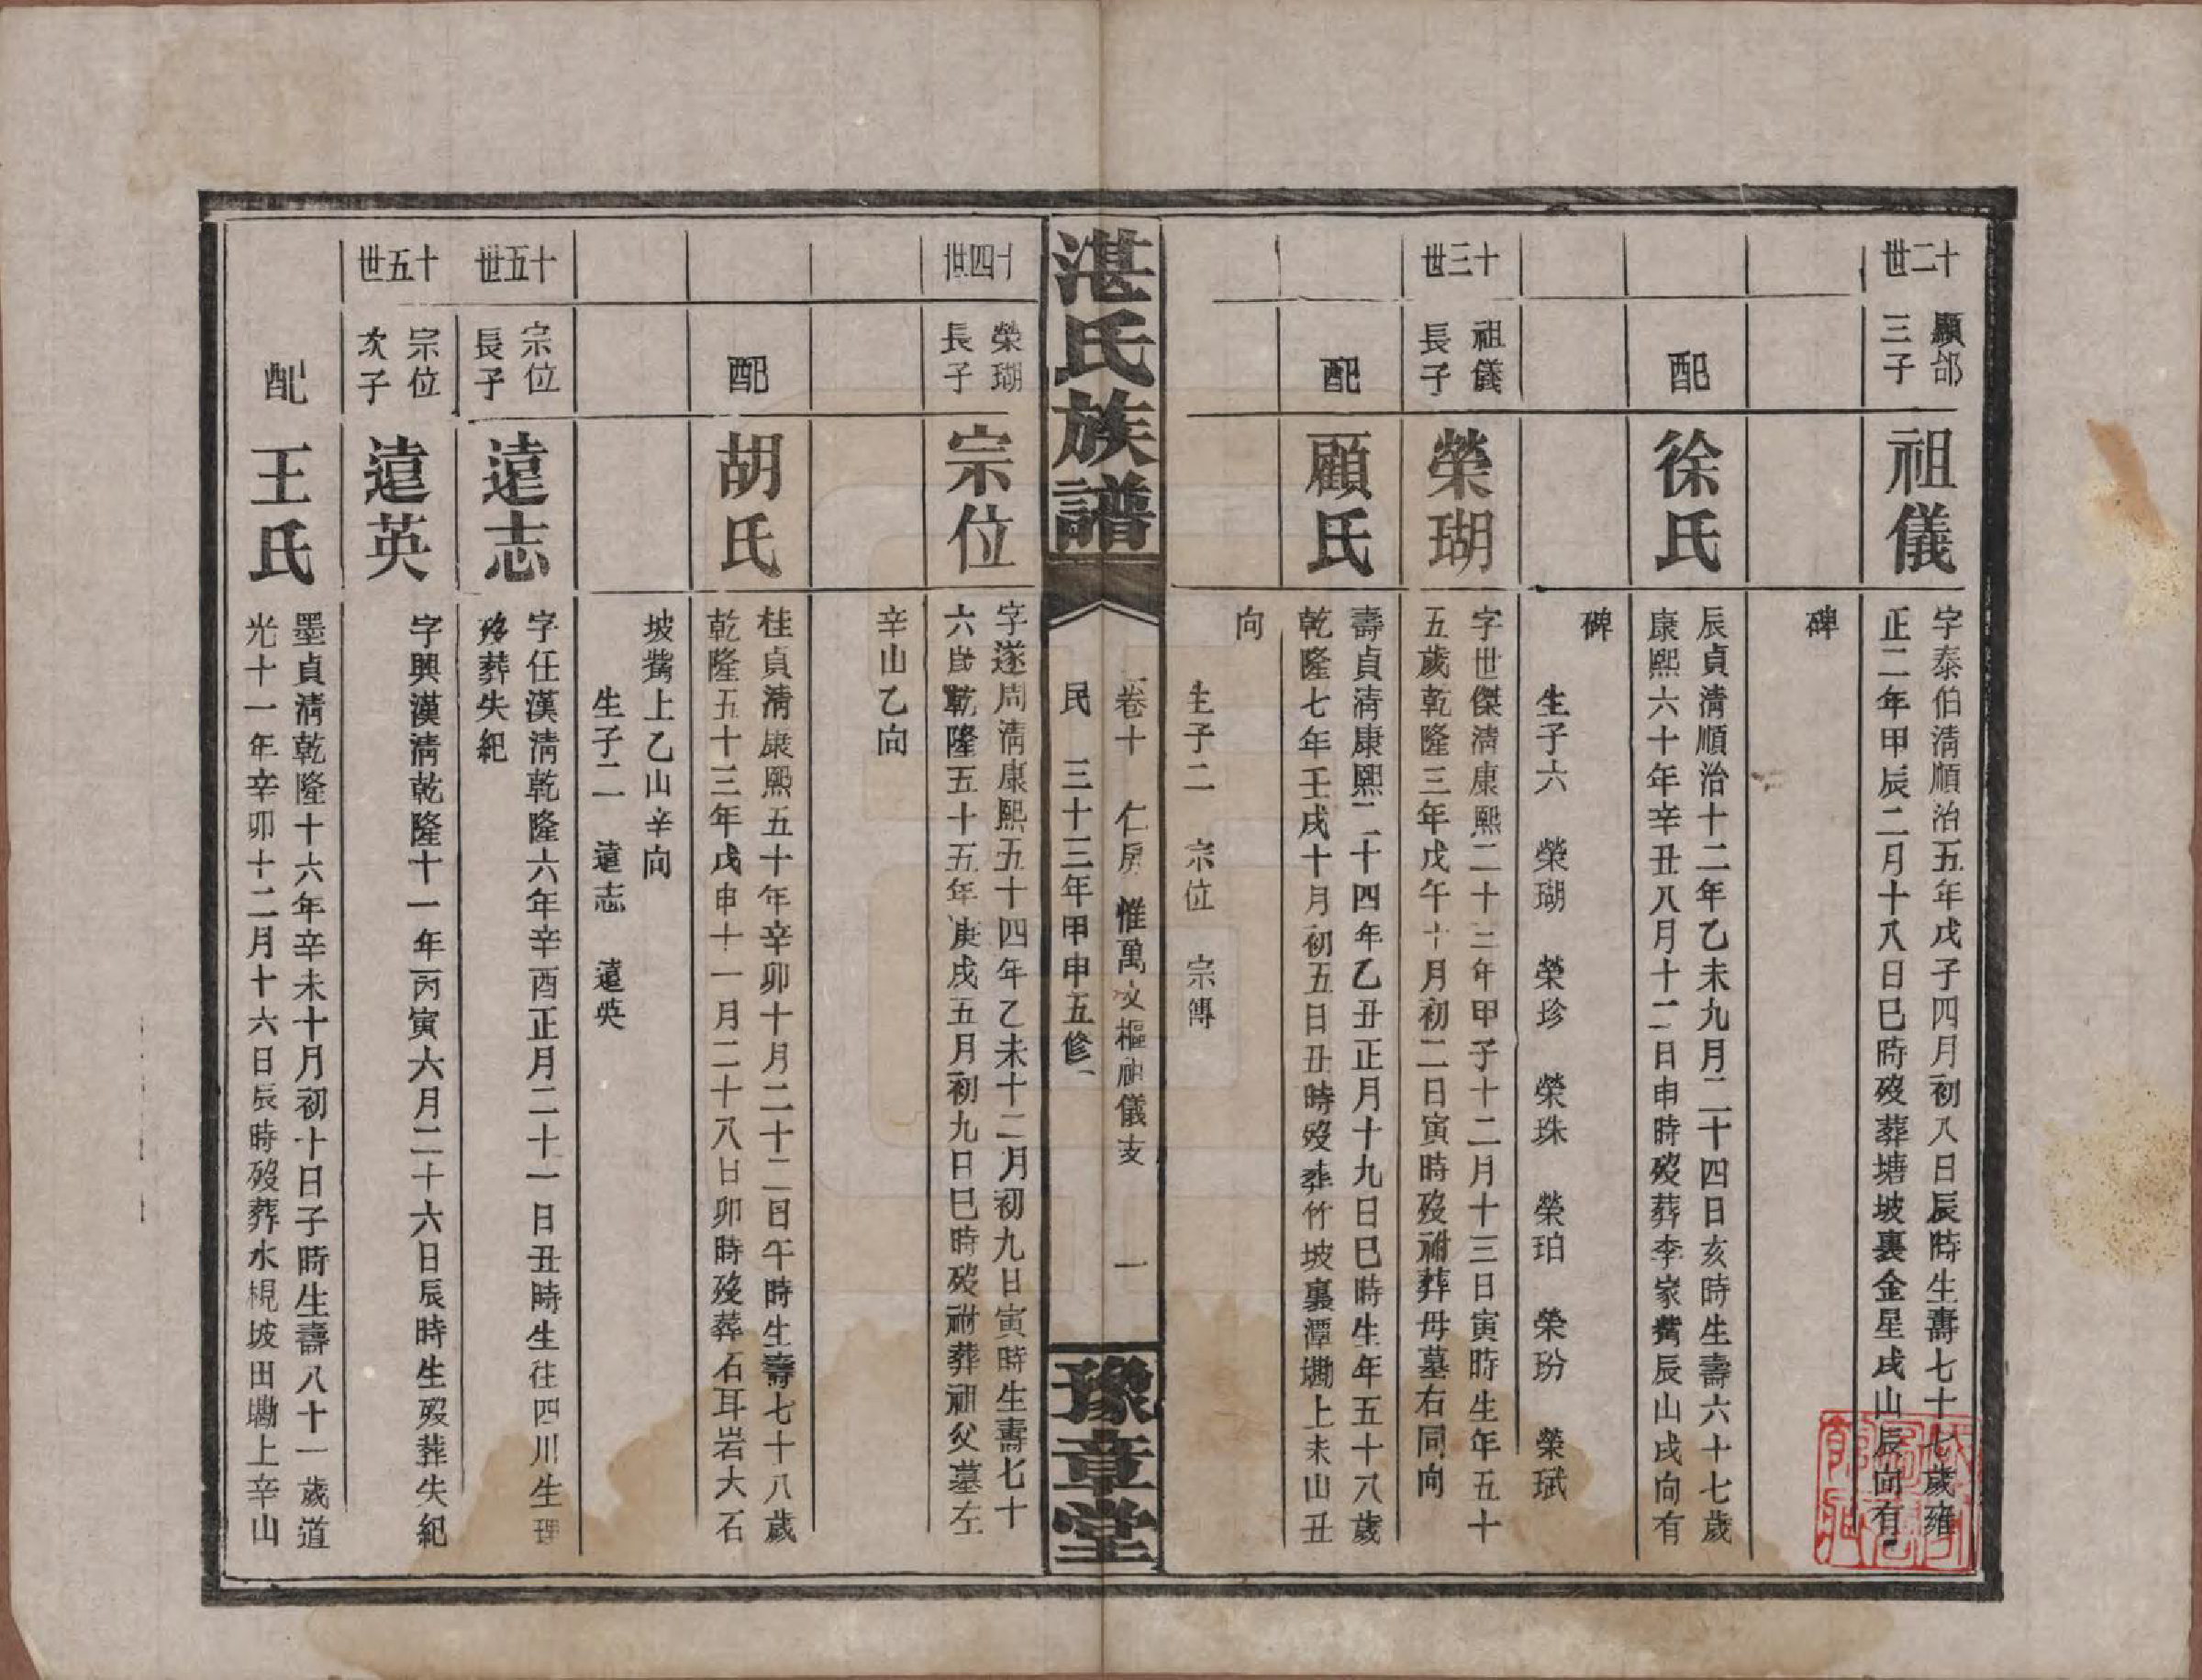 十二世
顯郃
三子
祖儀
字泰伯清順治五年戊子四月初八日辰時生壽七十七歲雍
正二年甲辰二月十八日巳時歿葬塘坡裏金星戌山辰向有
碑
配
徐氏
辰貞清順治十二年乙未九月二十四日亥時生壽六十七歲
康熙六十年辛丑八月十二日申時歿葬李家觜辰山戌向有
碑
生子六 榮瑚 榮珍 榮珠 榮珀 榮玢 榮珷
十三世
祖儀
長子
榮瑚
字世傑清康熙二十三年甲子十二月十三日寅時生年五十
五歲乾隆三年戊午十月初二日寅時歿祔葬母墓右同向
配
顧氏
壽貞清康熙二十四年乙丑正月十九日巳時生年五十八歲
乾隆七年壬戌十月初五日丑時歿葬竹坡裏潭墈上未山丑
向
生子二 宗位 宗傳
湛氏族譜
卷十 仁房 惟萬文樞祖儀支 一
民 三十三年甲申五修
豫章堂
十四世
榮瑚
長子
宗位
字遂周清康熙五十四年乙未十二月初九日寅時生壽七十
六歲乾隆五十五年庚戌五月初九日巳時歿祔葬祖父墓左
辛山乙向
配
胡氏
桂貞清康熙五十年辛卯十月二十二日午時生壽七十八歲
乾隆五十三年戊申十一月二十八日卯時歿葬石耳岩大石
坡觜上乙山辛向
生子二 遠志 遠英
十五世
宗位
長子
遠志
字任漢清乾隆六年辛酉正月二十一日丑時生往四川生理
歿葬失紀
十五世
宗位
次子
遠英
字興漢清乾隆十一年丙寅六月二十六日辰時生歿葬失紀
配
王氏
墨貞清乾隆十六年辛未十月初十日子時生壽八十一歲道
光十一年辛卯十二月十六日辰時歿葬水梘坡田墈上辛山